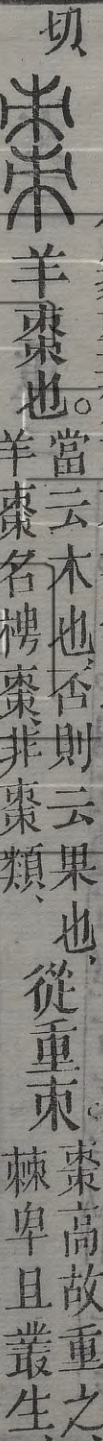 切
棗
羊棗也。
當云木也、否則云果也、
羊棗名梬棗、非棗類、
從重朿。
棗高故重之、
棘卑且叢生、